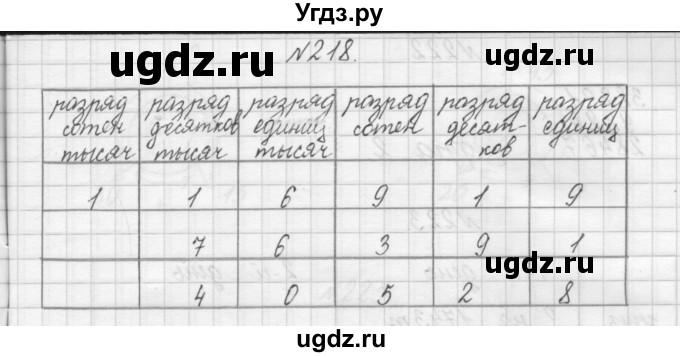 Угдз.ру
ugdz.ru
ugdz.ru
№218.
разряд сотен тысяч
разряд десятков тысяч
разряд единиц тысяч
разряд сотен
разряд десят-ков
разряд единиц
1 1 6 9 1 9
7 6 3 9 1
ugdz.ru
ugdz.ru
4 0 5 2 8
ugdz.ru